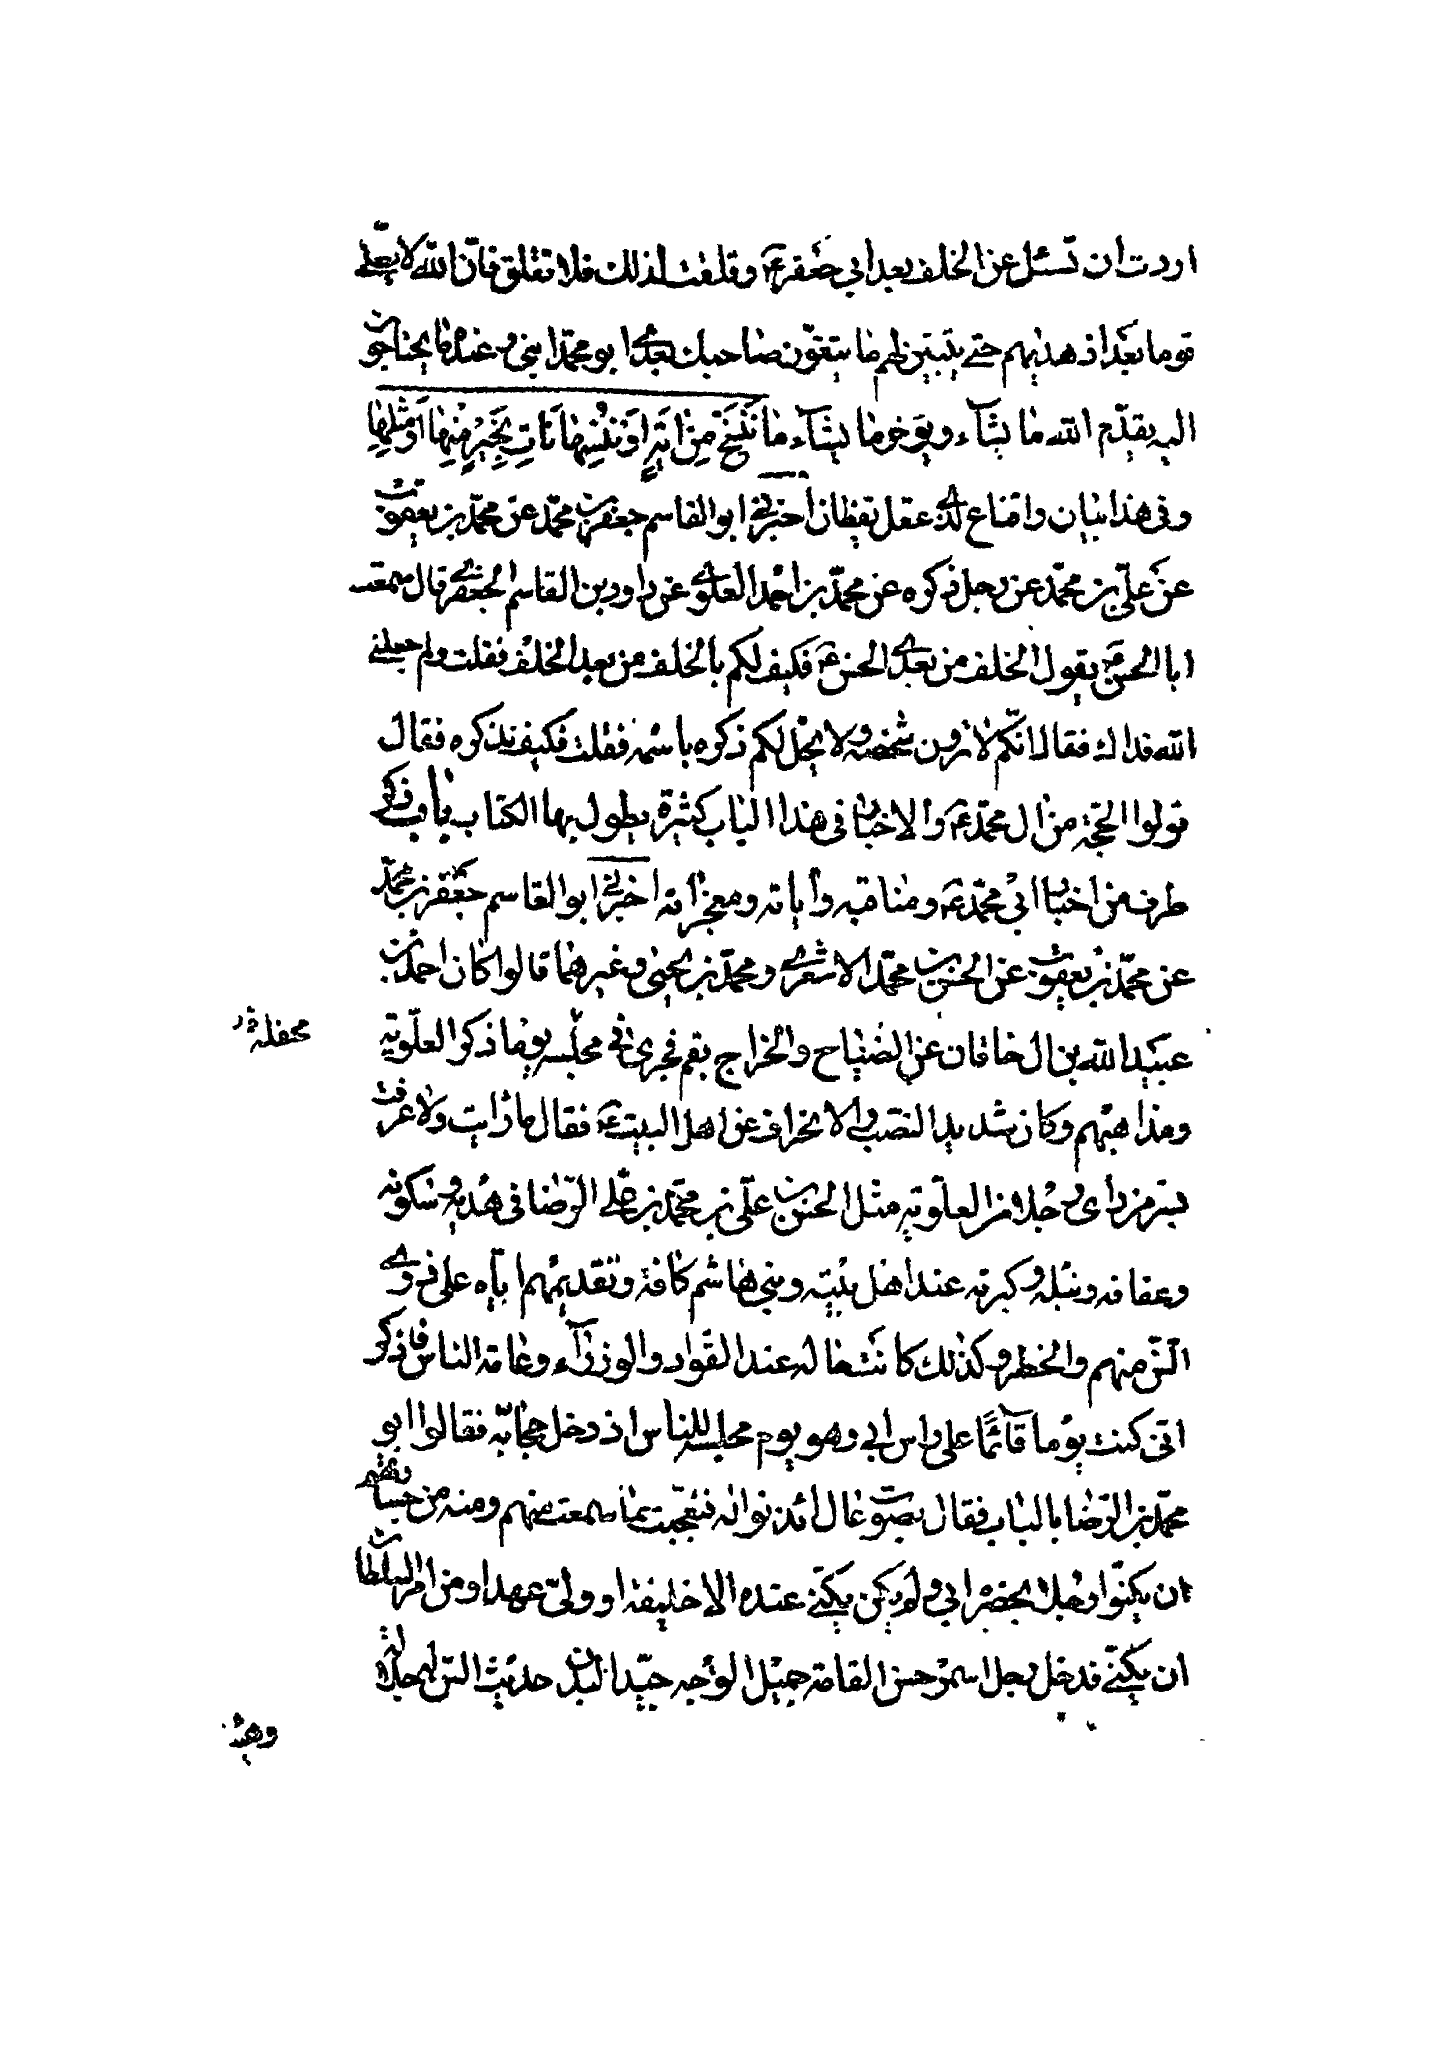 اردت ان تسئل عن الخلف بعد ابي جعفر ع وقلقت لذلك فلا تقلق فان الله لا يضل
قوما بعد اذ هديهم حتى يتبين لهم ما يتقون صاحبك بعدي ابو محمد ابني وعنده ما يحتاجون
اليه يقدم الله ما يشاء ويؤخر ما يشاء ما ننسخ من اية او ننسها نات بخير منها او مثلها
وفي هذا بيان واقناع لذي عقل يقظان اخبرني ابو القاسم جعفر بن محمد عن محمد بن يعقوب
عن علي بن محمد عن رجل ذكره عن محمد بن احمد العلوي عن داود بن القاسم الجعفري قال سمعت
ابا الحسن ع يقول الخلف من بعدي الحسن ع فكيف لكم بالخلف من بعد الخلف فقلت ولم جعلني
الله فداك فقال انكم لا ترون شخصه ولا يحل لكم ذكره باسمه فقلت فكيف نذكره فقال
قولوا الحجة من ال محمد ع والاخبار في هذا الباب كثيرة يطول بها الكتاب باب ذكر
طرف من اخبار ابي محمد ع ومناقبه واياته ومعجزاته اخبرني ابو القاسم جعفر بن محمد
عن محمد بن يعقوب عن الحسين بن محمد الاشعري ومحمد بن يحيى وغيرهما قالوا كان احمد بن
عبيد الله بن خاقان على الضياح والخراج بقم فجرى في مجلسه يوما ذكر العلوية
محفله
ومذاهبهم وكان شديد النصب والانحراف عن اهل البيت ع فقال ما رايت ولا عرفت
بسر من راى رجلا من العلوية مثل الحسن بن علي بن محمد بن علي الرضا في هديه وسكونه
وعفافه ونبله وكبرته عند اهل بيته وبني هاشم كافة وتقديمهم اياه على ذوي
السن منهم والخطر وكذلك كانت حاله عند القواد والوزراء وعامة الناس فاذكر
انني كنت يوما قائما على راس ابي وهو يوم مجلسه للناس اذ دخل حجابه فقالوا ابو
محمد بن الرضا بالباب فقال بصوت عال ائذنوا له فتعجبت مما سمعت منهم ومنه من جسارتهم
ان يكنوا رجلا بحضرة ابي ولم يكن يكنى عنده الا خليفة او ولي عهد او من امر السلطان
ان يكنى فدخل رجل اسمر حسن القامة جميل الوجه جيد البدن حديث السن له جلالة
وهيئة